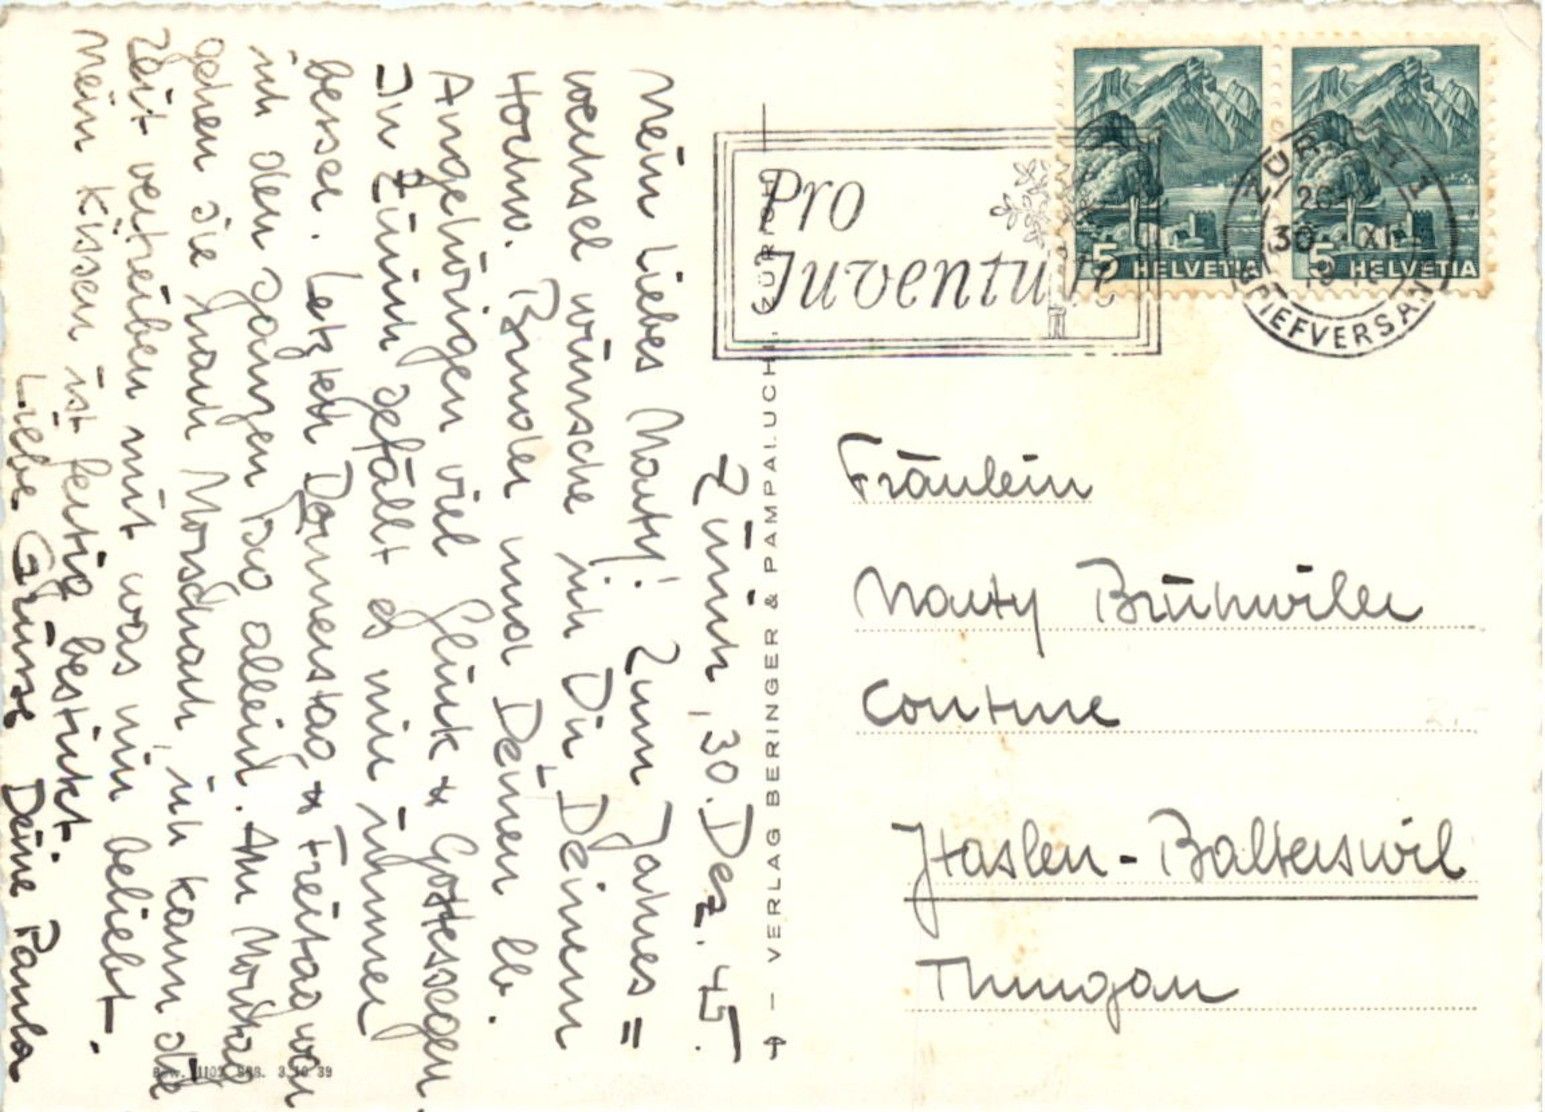 Zürich, 30. Dez. 45.
Mein liebes Marty! Zum Jahres=
wechsel wünsche ich Dir, Deinem
Hochw. Bruder und Deinen lb.
Angehörigen viel Glück & Gottessegen.
In Zürich gefällt es mir immer
besser. Letzten Donnerstag & Freitag war
ich den ganzen
gehen sie nach Morschach, ich kann die
Zeit vertreiben mit was mir beliebt.
Mein Kissen ist fertig bestickt.
Liebe Grüsse Deine Paula
Pro
Juventute
HELVETIA
5
HELVETIA
5
ZÜRICH 1
30. XI
BRIEFVERSAND
VERLAG BERINGER & PAMPALUCHI, ZÜRICH
Fräulein
Marty Brühwiler
Haslen-Balterswil
Thurgau
Bew. 1102 BRB. 3.10.39